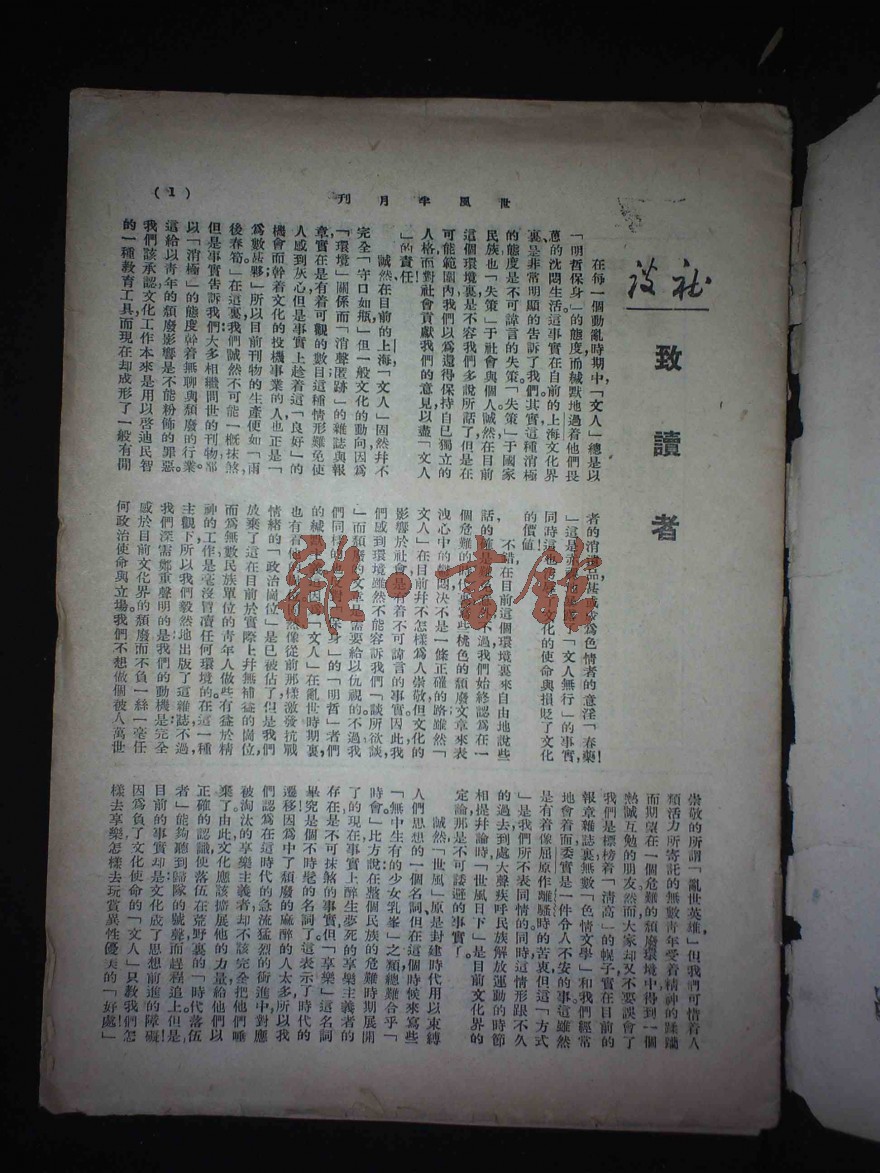 世風半月刊
(1)
社談
致讀者
在每一個動亂時期中，「文人」總是以
「明哲保身」的態度而緘默地過着他們畏
葸的沈悶生活這事實在目前的上海文化界
裏是非常明顯的告訴了我們。其實這種消極
的態度是不可諱言的失策「失策」于國家
民族也「失策」于社會與個人誠然在目前
這個環境裏是不容我們多說所話了但是在
可能範圍內我們以爲還得保持自己獨立的
人格而對社會貢獻我們的意見以盡「文人
」的責任！
誠然在目前的上海「文人」固然幷不
完全「守口如瓶」但一般文化的動向因爲
「環境」關係而「消聲匿跡」的雜誌與報
章實在是有着可觀的數目這種情形難免使
人感到灰心但是事實上趁着這「良好」的
機會而幹着文化的投機事業的人也正是「
爲數甚夥」所以目前刊物的生產便如「雨
後春筍」在這裏我們誠然不可能一槪抹煞
但是事實告訴我們大多相繼問世的刊物都
以「消極」的態度幹着無聊與頹廢的行業。
這給以靑年的頹廢影響是不能粉飾的罪惡。
我們該承認文化工作本來是用以啓迪民智
的一種敎育工具，而現在却成形了一般有閒
者的消遣品甚或淪爲色情者的意淫「春藥」
」這是
「文人無行」的事實，
同時這也
文化的使命與損貶了文化
的價値！
不錯在目前這個環境裏來自由地說些
話的確是
不過我們始終認爲在一
個危難的時代
些桃色的頹廢文章來表
洩心中的苦悶決不是一條正確的路雖然「
文人」在目前幷不怎樣爲人崇敬但文化的
影響於社會是有着不可諱言的事實因此我
們感到環境雖然不能容訴我們「談所欲談
」而頹廢的文章是需要給以仇視的不過我
們同樣的也
保身」的「明哲」者們
的緘默
因爲「文人」在亂世時期裏
也有着他
然像從前那樣激發抗戰
情緒的「政治崗位」是已被佔了但是我們
放棄了這在目前於實際上幷無補益的崗位，
而爲無數民族單位的靑年人做些有益於精
神的工作是毫沒冒凟任何環境的在這一種
主觀下所以我們毅然地出版了這雜誌不過，
我們深需鄭重聲明的是我們的動機是完全
感於目前文化界的頹廢而不負一絲一毫任
何政治使命與立場。我們不想做個被人萬世
崇敬的所謂「亂世英雄」但我們可惜着人
類活力所寄託的無數靑年受着精神的蹂躪
而期望在一個危難的頹廢環境中得到一個
熱誠互勉的朋友然而大家却又不要誤會了
我們是標榜着「淸高」的幌子實在目前的
報章雜誌裏無數「色情文學」和我們經常
地會着而委實是一件分人不安的事這雖然
是有着像屈原作離騷時的苦衷但這「方式
」是我們所不表同情的同時這情形跟不久
的過去到處大聲疾呼民族解放運動的時節
相提幷論時「世風日下」是目前文化界的
定論那是不可諉避的事實了。
誠然「世風」原是封建時代用以束縛
人們思想的一個名詞、但在這個時候來寫些
「無中生有的少女乳峯」之類總難合乎「
時會」比方說在整個民族的危難時期展開
了的現在事實上醉生夢死的享樂主義者的
存在是不可抹煞的事實但「享樂」這名詞
畢究是個不時髦的名詞了。這表示了時代的
遷移因爲中了頹廢的麻醉的人太多所以我
們認爲在這時代的急流猛烈的衝進中對應
被淘汰的享樂主義者却不該完全把他們唾
棄了。由此，文化應該擴展他的力量給他們以
正確的認識使落伍在荒野裏的「時代落伍
者」能夠聽到歸隊的號聲而趕程追上。但是
目前的事實却是文化成了思想前進的障礙
因爲負了文化使命的「文人」只敎我們怎
樣去享樂怎樣去玩賞異性優美的「好處」！
雜·書館